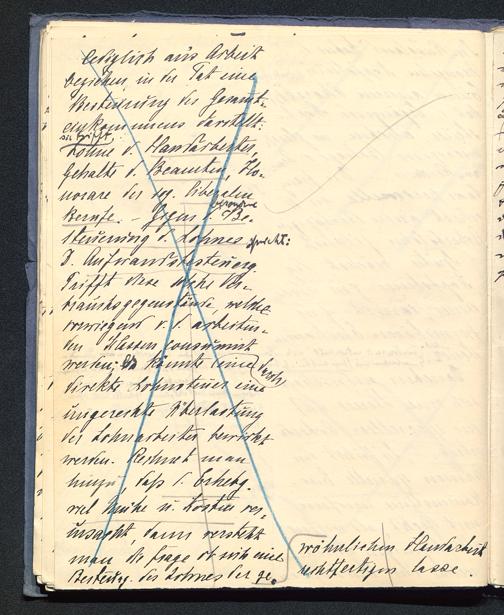 lediglich aus Arbeit
beziehen, in der Tat eine
Besteuerung des Gesamt-
einkommens darstellt:
sie trifft
Löhne d. Handarbeiter,
Gehalte d. Beamten, Ho-
norare der sog. liberalen
Berufe. – Gegen d. besondere Be-
steuerung d. Lohnes spricht:
D. Aufwandbesteuerung
trifft ohne
brauchsgegenstände, welche
vorwiegend v. d. arbeiten-
den Klassen consumirt
werden; es könnte eine
direkte Lohnsteuer eine
ungerechte Überlastung
des Lohnarbeiter bewirkt
werden. Rechnet man
hinzu, daß d. Erhebg.
viel Mühe u. Kosten ver-
ursacht, dann versteht
man die Frage ob sich eine
Besteurg. des Lohnes der ge-
wöhnlichen Handarbeit
rechtfertigen lasse.